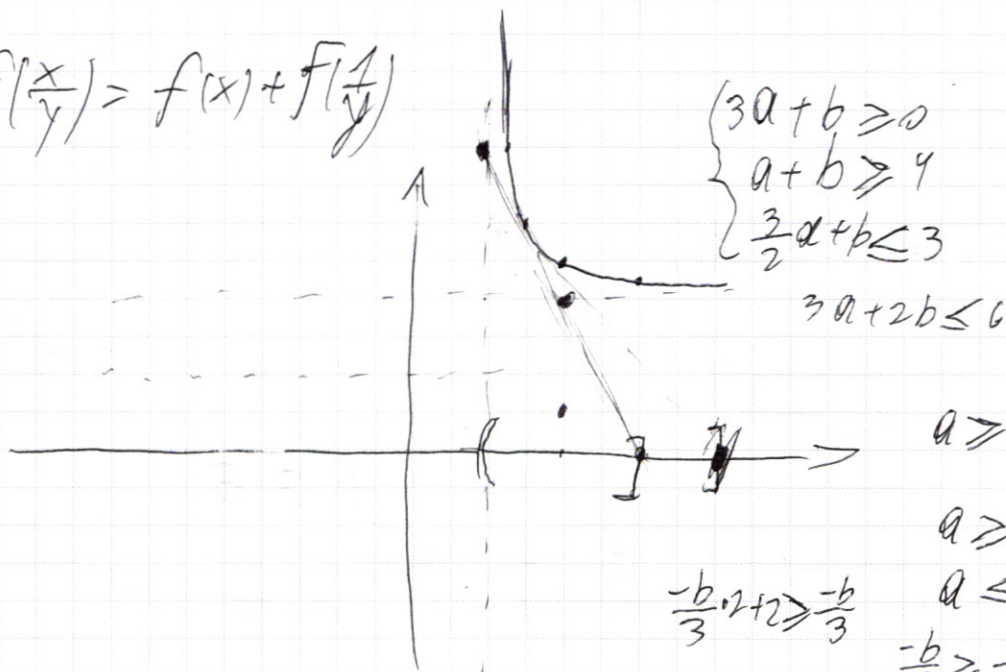 f(x/y) = f(x) + f(1/y)
3a + b ≥ 0
a + b ≥ 4
3/2 a + b ≤ 3
3a + 2b ≤ 6
a ≥
a ≥
a ≤
-b/3 · 2 + 2 ≥ -b/3
-b